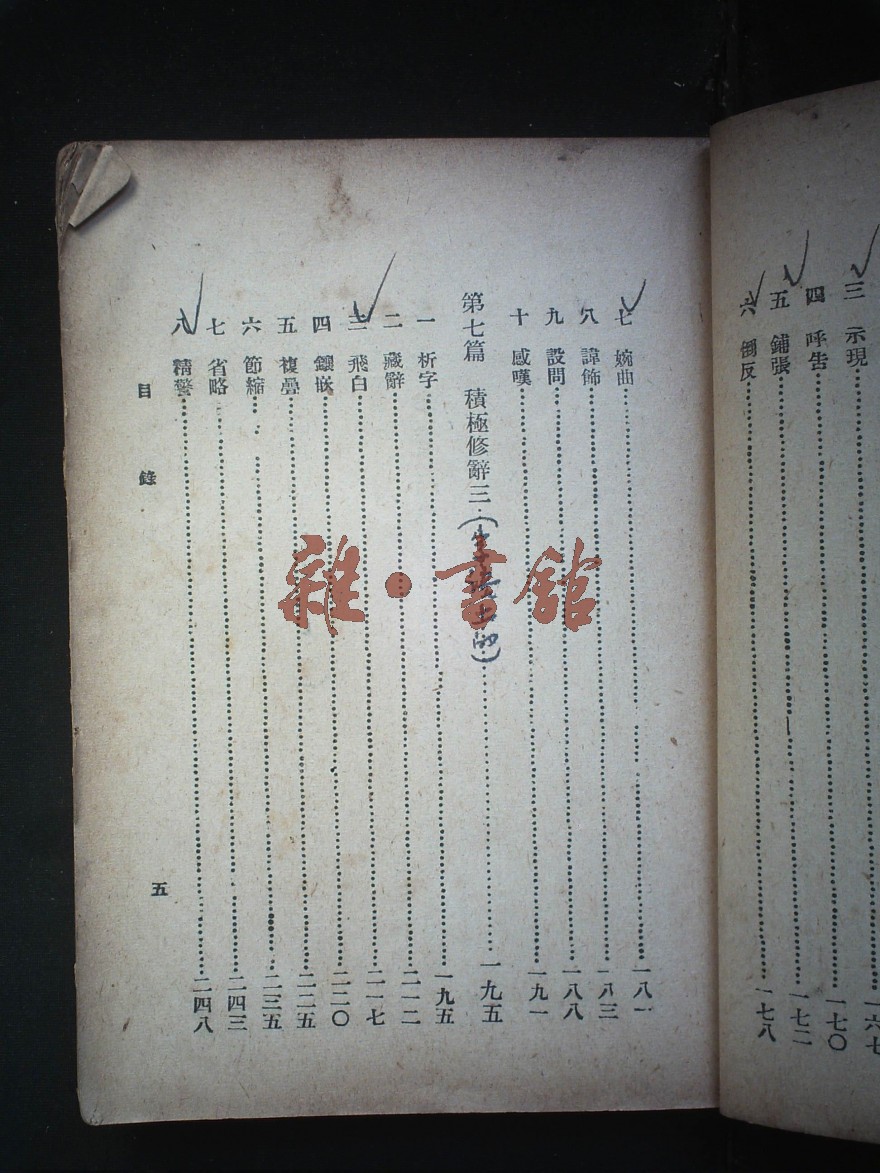 三　示現……一六七
四　呼告……一七〇
五　鋪張……一七二
六　倒反……一七八
七　婉曲……一八一
八　諱飾……一八三
九　設問……一八八
十　感嘆……一九一
第七篇　積極修辭三（字語上的）……一九五
一　析字……一九五
二　藏辭……二一二
三　飛白……二一七
四　鑲嵌……二二〇
五　複疊……二二五
六　節縮……二三五
七　省略……二四三
八　精警……二四八
目錄
五
雜·書館